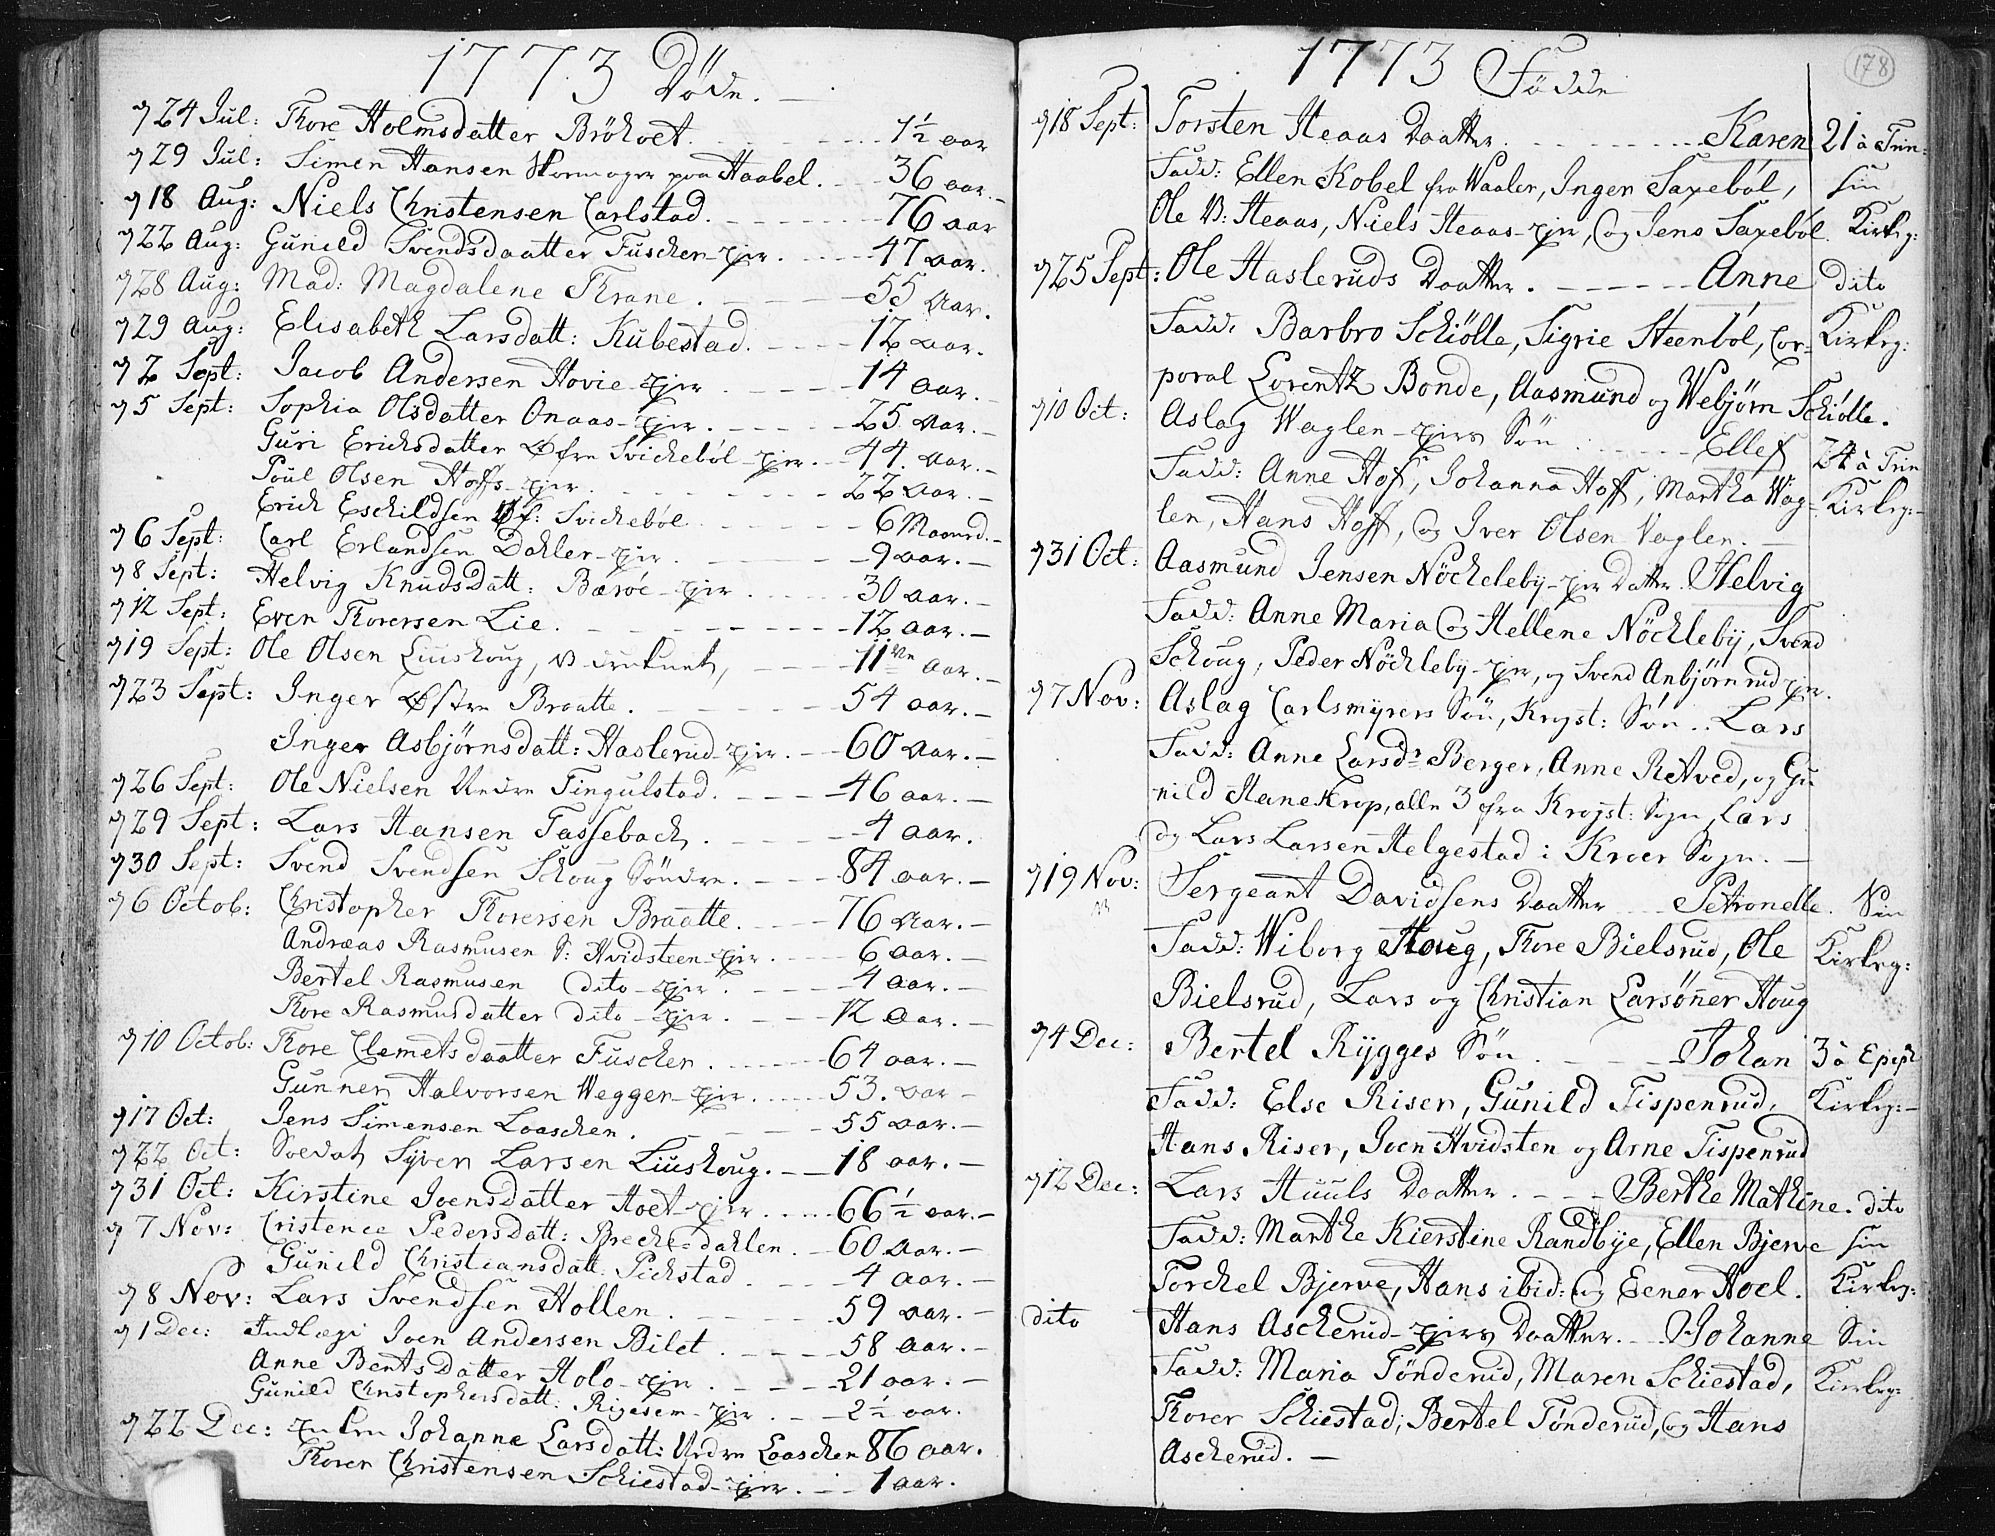 1773 Döde.
24 Jul: Thore Holmsdatter Bröhoet. 1½ aar
29 Jul: Simen Hansen paa Haabel. 36 aar.
18 Aug: Niels Christensen Carlstad. 76 aar
22 Aug: Gunild Svendsdaatter Fuscher-ejer. 47 aar.
28 Aug: Mad: Magdalene Thrane. 55 Aar.
29 Aug: Elisabeth Larsdatt: Kubestad. 12 aar.
2 Sept: Jacob Andersen Hovie-ejer 14 aar.
5 Sept: Sophia Olsdatter Onaas-ejer. 25 Aar.
Guri Erichsdatter Øfre Svichebøl-ejer. 44. Aar.
Poul Olsen Hoffs-ejer. 22 Aar.
Erich Eschildsen Øf: Svichebøl 6 Maaned.
6 Sept: Carl Erlandsen Dahler-ejer. 9 aar.
8 Sept: Helvig Knudsdatt: Bærøe-ejer 30 aar.
12 Sept: Even Thorersen Lie. 12 aar.
19 Sept: Ole Olsen Liushoug, 11 aar.
23 Sept: Inger Østre Braatte. 54 aar.
Inger Asbjørnsdatt: Haslerud-ejer. 60 Aar.
26 Sept: Ole Nielsen Nedre Tingulstad. 46 aar.
29 Sept: Lars Hansen Tassebach. 4 aar.
30 Sept: Svend Svendsen Schoug Söndre. 84 aar.
6 Octob: Christopher Thorersen Braatte. 76 Aar.
Andræas Rasmusen S: Hvidsteen-ejer 6 aar.
Bertel Rasmusen dito-ejer 4 aar.
Thore Rasmusdatter dito-ejer. 12 Aar.
10 Octob: Thore Clemetsdaatter Fuscher. 64 aar.
Gunner Halvorsen Wegger-ejer. 53. aar
17 Oct: Jens Simensen Laaschen. 55 aar.
22 Oct: Soldat Syver Larsen Liushoug. 18 aar.
31 Oct: Kirstine Joensdatter Hoet-ejer 66½ aar.
7 Nov: Cristence Pedersdatt: Brechedahlen. 60 Aar.
Gunild Christiansdatt. Pichstad. 4 aar.
8 Nov: Lars Svendsen Hollen. 59 aar.
1 Dec: Indlægi Joen Andersen Bilet. 58 aar.
Anne Bentsdatter Holo-ejer. 21 aar.
Gunild Christophersdatt. Rigesem-ejer. 2½ aar.
22 Dec: Enken Johanne Larsdatt: Nedre Laaschen 86 aar.
Thorer Christensen Schiestad-ejer. 1 aar.
1773 Födde
178
18 Sept: Torsten Heaas Daatter. Karen 21 à Trin:
Fadd: Ellen Kobel fra Waaler, Inger Saxebøl, sin
Ole B: Heaas, Niels Heaas-ejer, og Jens Saxebøl. Kirkeg:
25 Sept: Ole Hasleruds Daatter. Anne dito
Fadd. Barbro Schiölle, Sigrie Steenbøl, Cor= Kirkeg:
poral Lorentz Bonde, Aasmund og Webjørn Schiölle.
10 Oct: Aslag Waglen-ejers Søn Ellef 24 à Trin
Fadd: Anne Hof, Johanna Hoff, Martha Wag= Kirkeg:
len, Hans Hoff, og Iver Olsen Vaglen.
31 Oct: Aasmund Jensen Nöcheleby-ejer Datter. Helvig
Fadd: Anne Maria og Hellene Nöchleby, Svend
Schoug, Peder Nöchleby-ejer, og Svend Anbjørnrud ejer.
7 Nov: Aslag Carlsmyrers Søn, Krogst: Søn.. Lars
Fadd: Anne Larsdr Berger, Anne Retved, og Gu
nild Hanekrop, alle 3 fra Krogst: Sogn, Lars
og Lars Larsen Helgestad i Kroer Sogn.
19 Nov: Sergeant Davidsens Daatter Petronelle. Sin
Fadd: Wiborg Houg, Thore Bielsrud, Ole Kirkeg:
Bielsrud, Lars og Christian Larsøner Houg
4 Dec: Bertel Rygges Søn. Johan 3 à Epiph
Fadd: Else Riser, Gunild Tispenrud, Kirkeg:
Hans Riser, Joen Hvidsten og Arne Tispenrud
12 Dec: Lars Huuls Daatter. Berthe Mathine. dito
Fadd: Marthe Kierstine Randbye, Ellen Bjerve sin
Torchel Bjerve, Hans ibid: og Eener Hoel. Kirkeg:
dito Hans Ascherud-ejers Daatter. Johanne Sin
Fadd: Maria Tönderud, Maren Schiestad, Kirkeg:
Thorer Schiestad, Bertel Tønderud, og Hans
Ascherud.